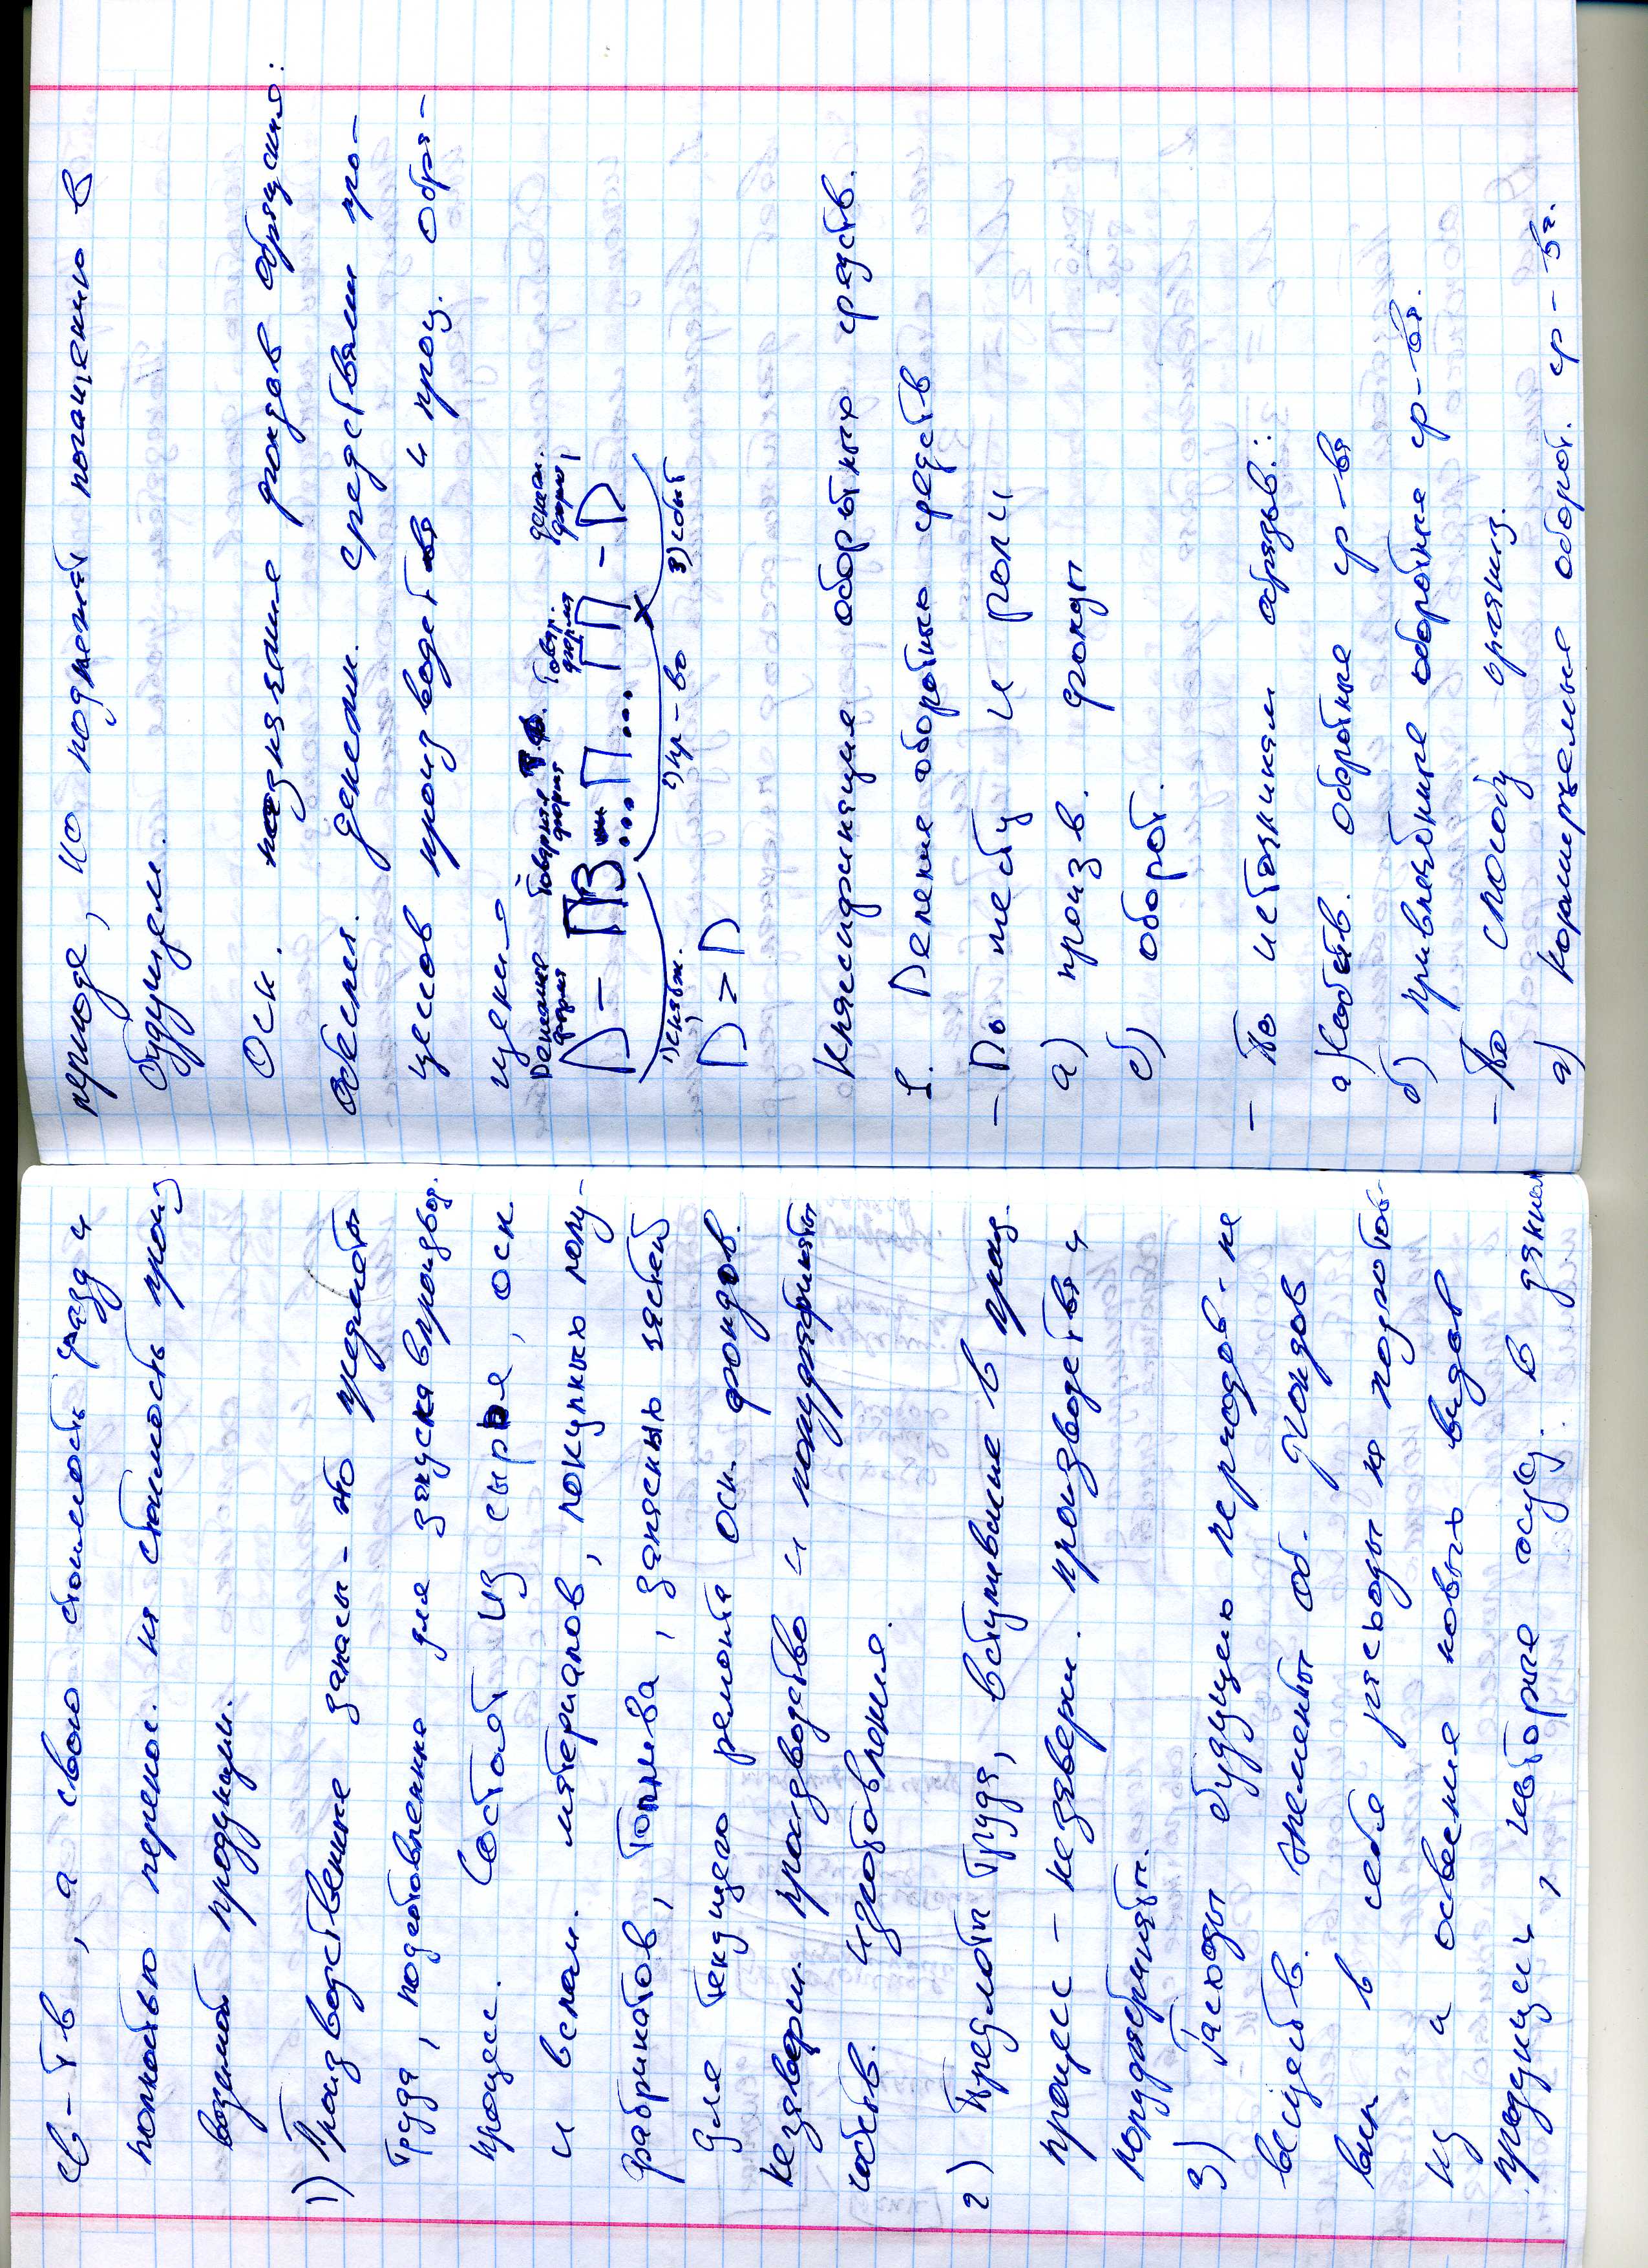 св-тв, а свою стоимость сразу и
полностью перенос. на стоимость произ
водимой продукции.
1) Производственные запасы - это предметы
труда, подготовленные для запуска в производ.
процесс. Состоят из сырья, осн.
и вспом. материалов, покупных полу-
фабрикатов, топлива, запасных частей
для текущего ремонта осн. фондов.
2) Предметы труда, вступившие в произ.
процесс - незаверш. производства и
полуфабрикаты.
незаверш. производство и полуфабрикаты
собств. изготовления.
3) Расходы будущих периодов - не
веществ. элементы об. фондов
вкл. в себя расходы на подготов-
ку и освоение новых видов
продукции, которые осущ. в данном
периоде, но подлежат погашению в
будущем.
Осн. назначение фондов обращения:
обеспеч. денежн. средствами про-
цессов производства и проц. обра-
щения
Денежная форма Товарная форма Т.Ф. Товар. форма денежн. форма
Д - ПЗ ... П ... ГП - Д
1) снабж. 2) пр-во 3) сбыт
Д > Д
Классификация оборотных средств.
1. Деление оборотных средств
- По месту и роли
а) произв. фонды
б) оборот.
- По источникам образов.:
а) Собств. оборотные ср-ва
б) привлечённые оборотные ср-ва.
- По способу организ.
а) нормируемые оборот. ср-ва.